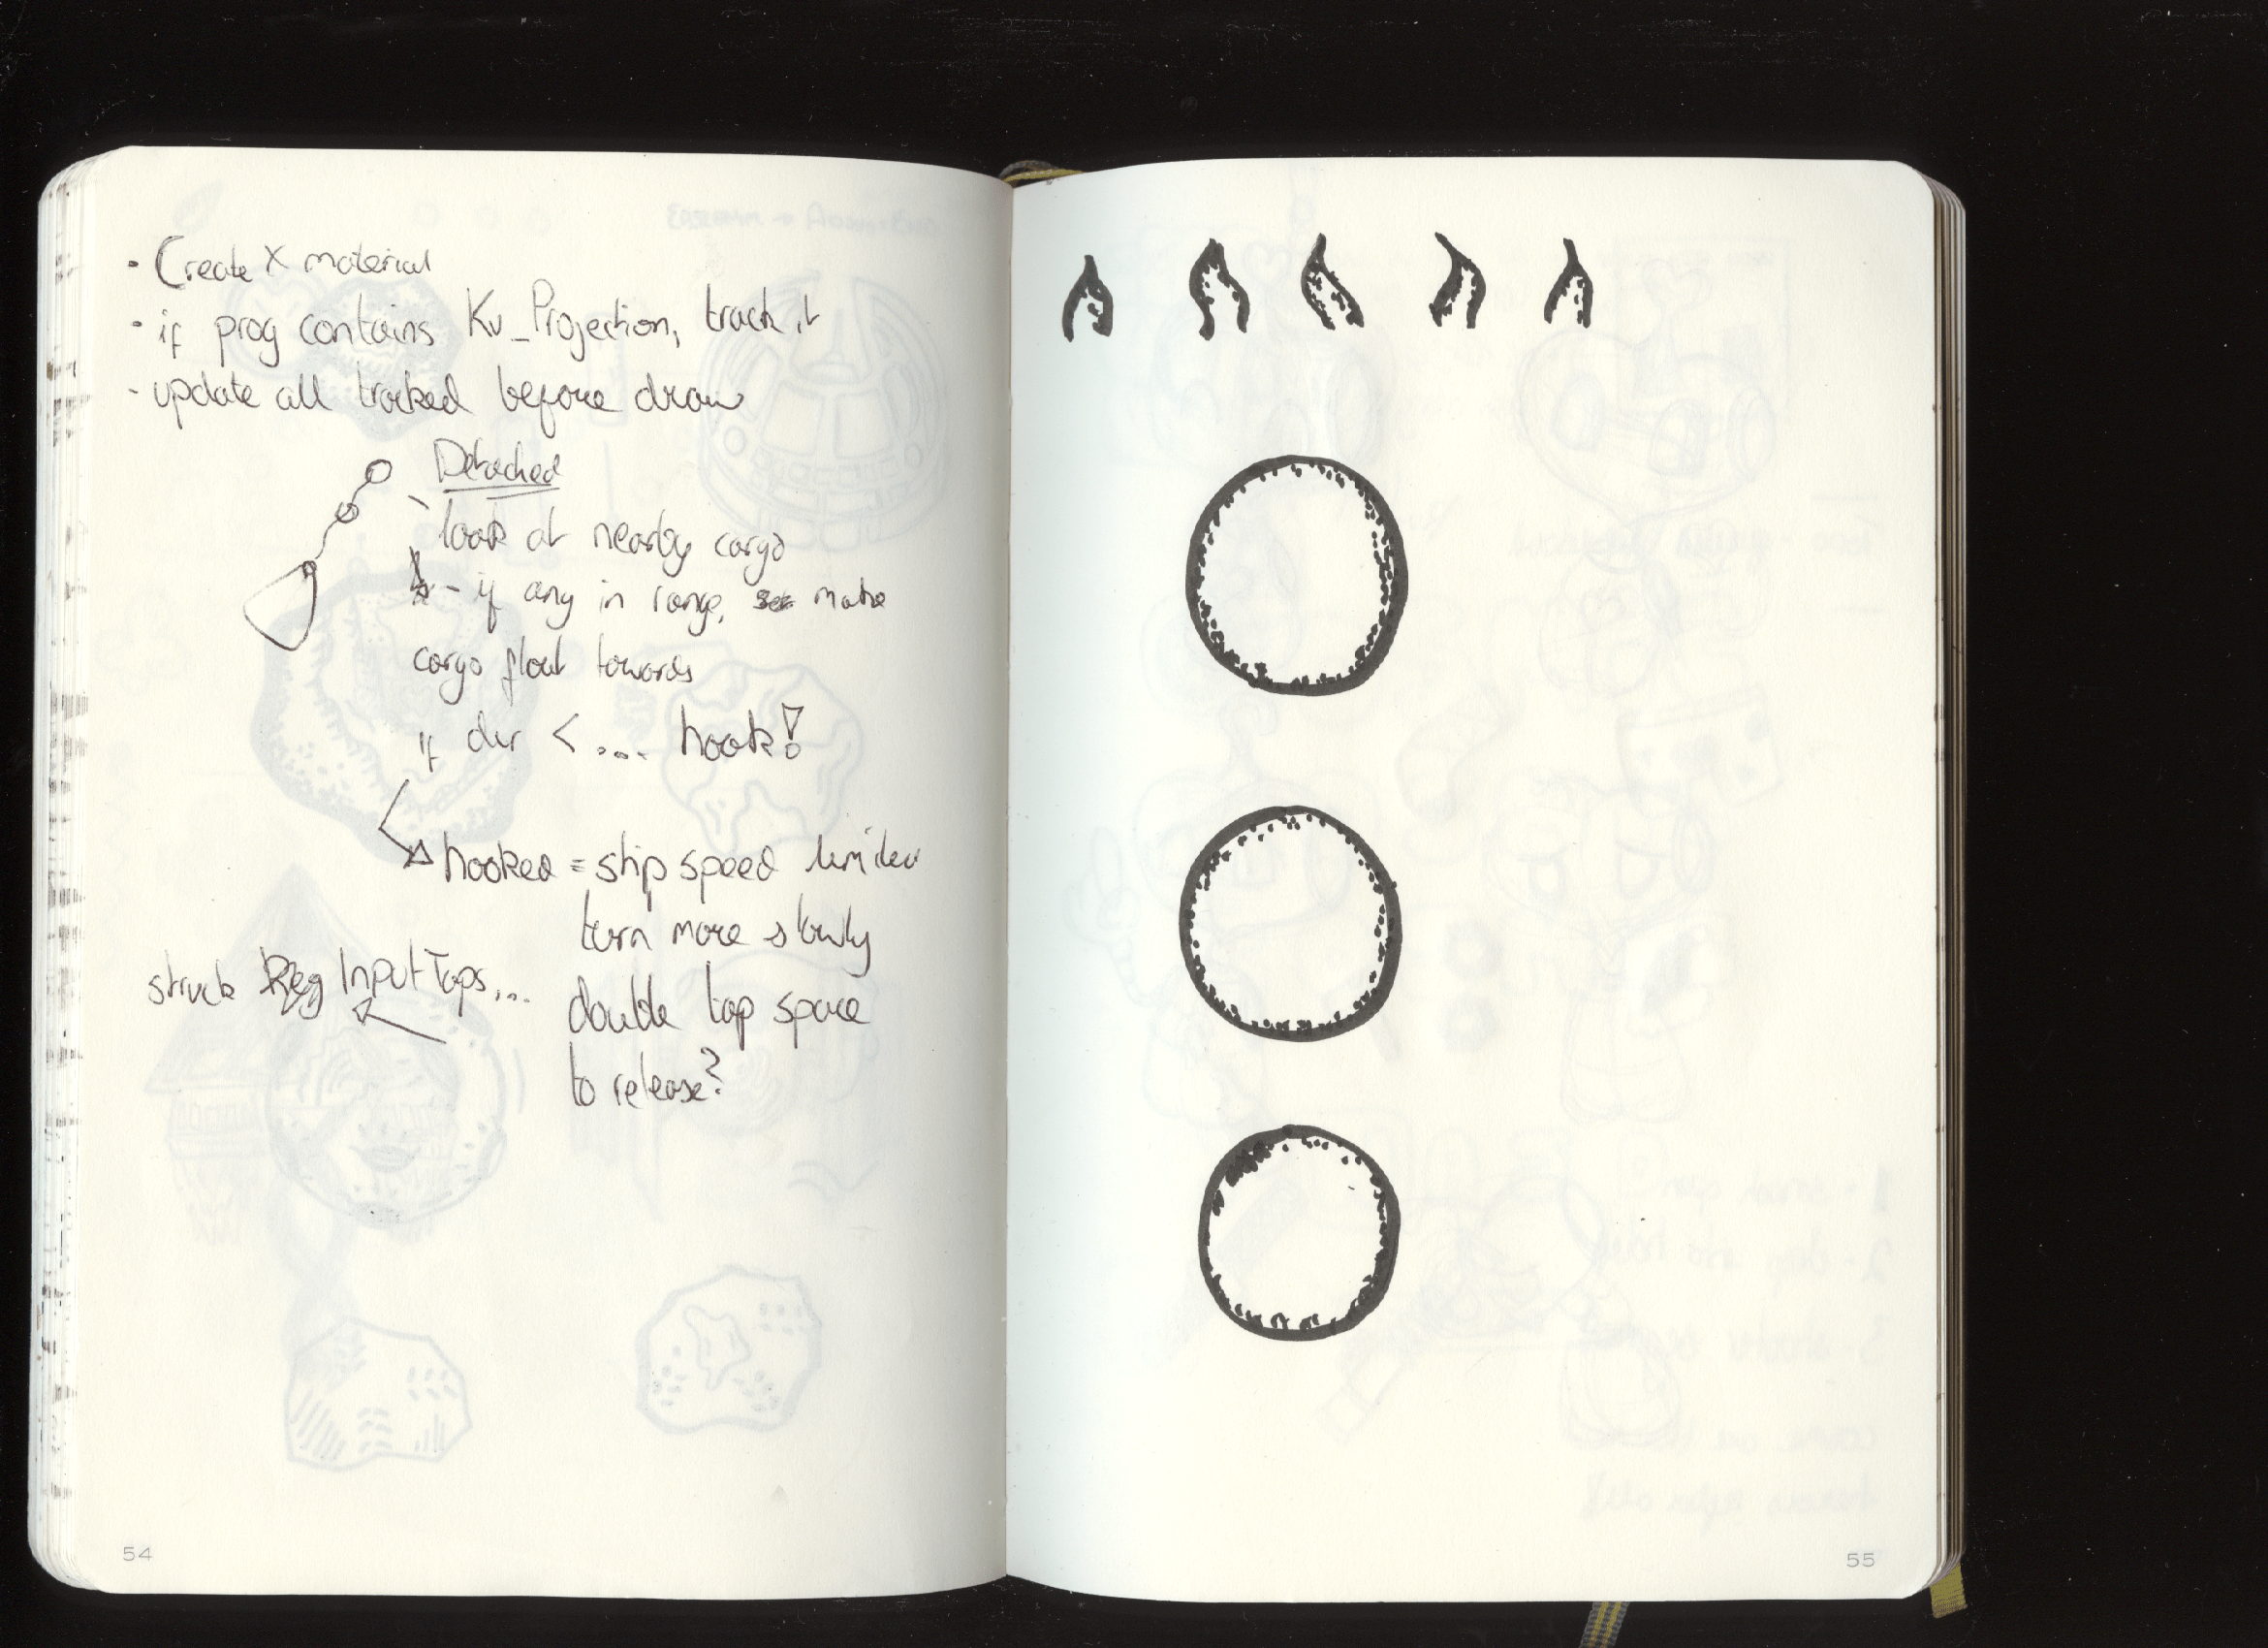 · Create X material
· if prog contains Kv_Projection, track it
- update all tracked before draw
Detached
- look at nearby cargo
- if any in range, make
cargo float towards
if < .... hook!
hooked = ship speed
turn more slowly
struct Input Taps...
double tap space
to release?
54
55